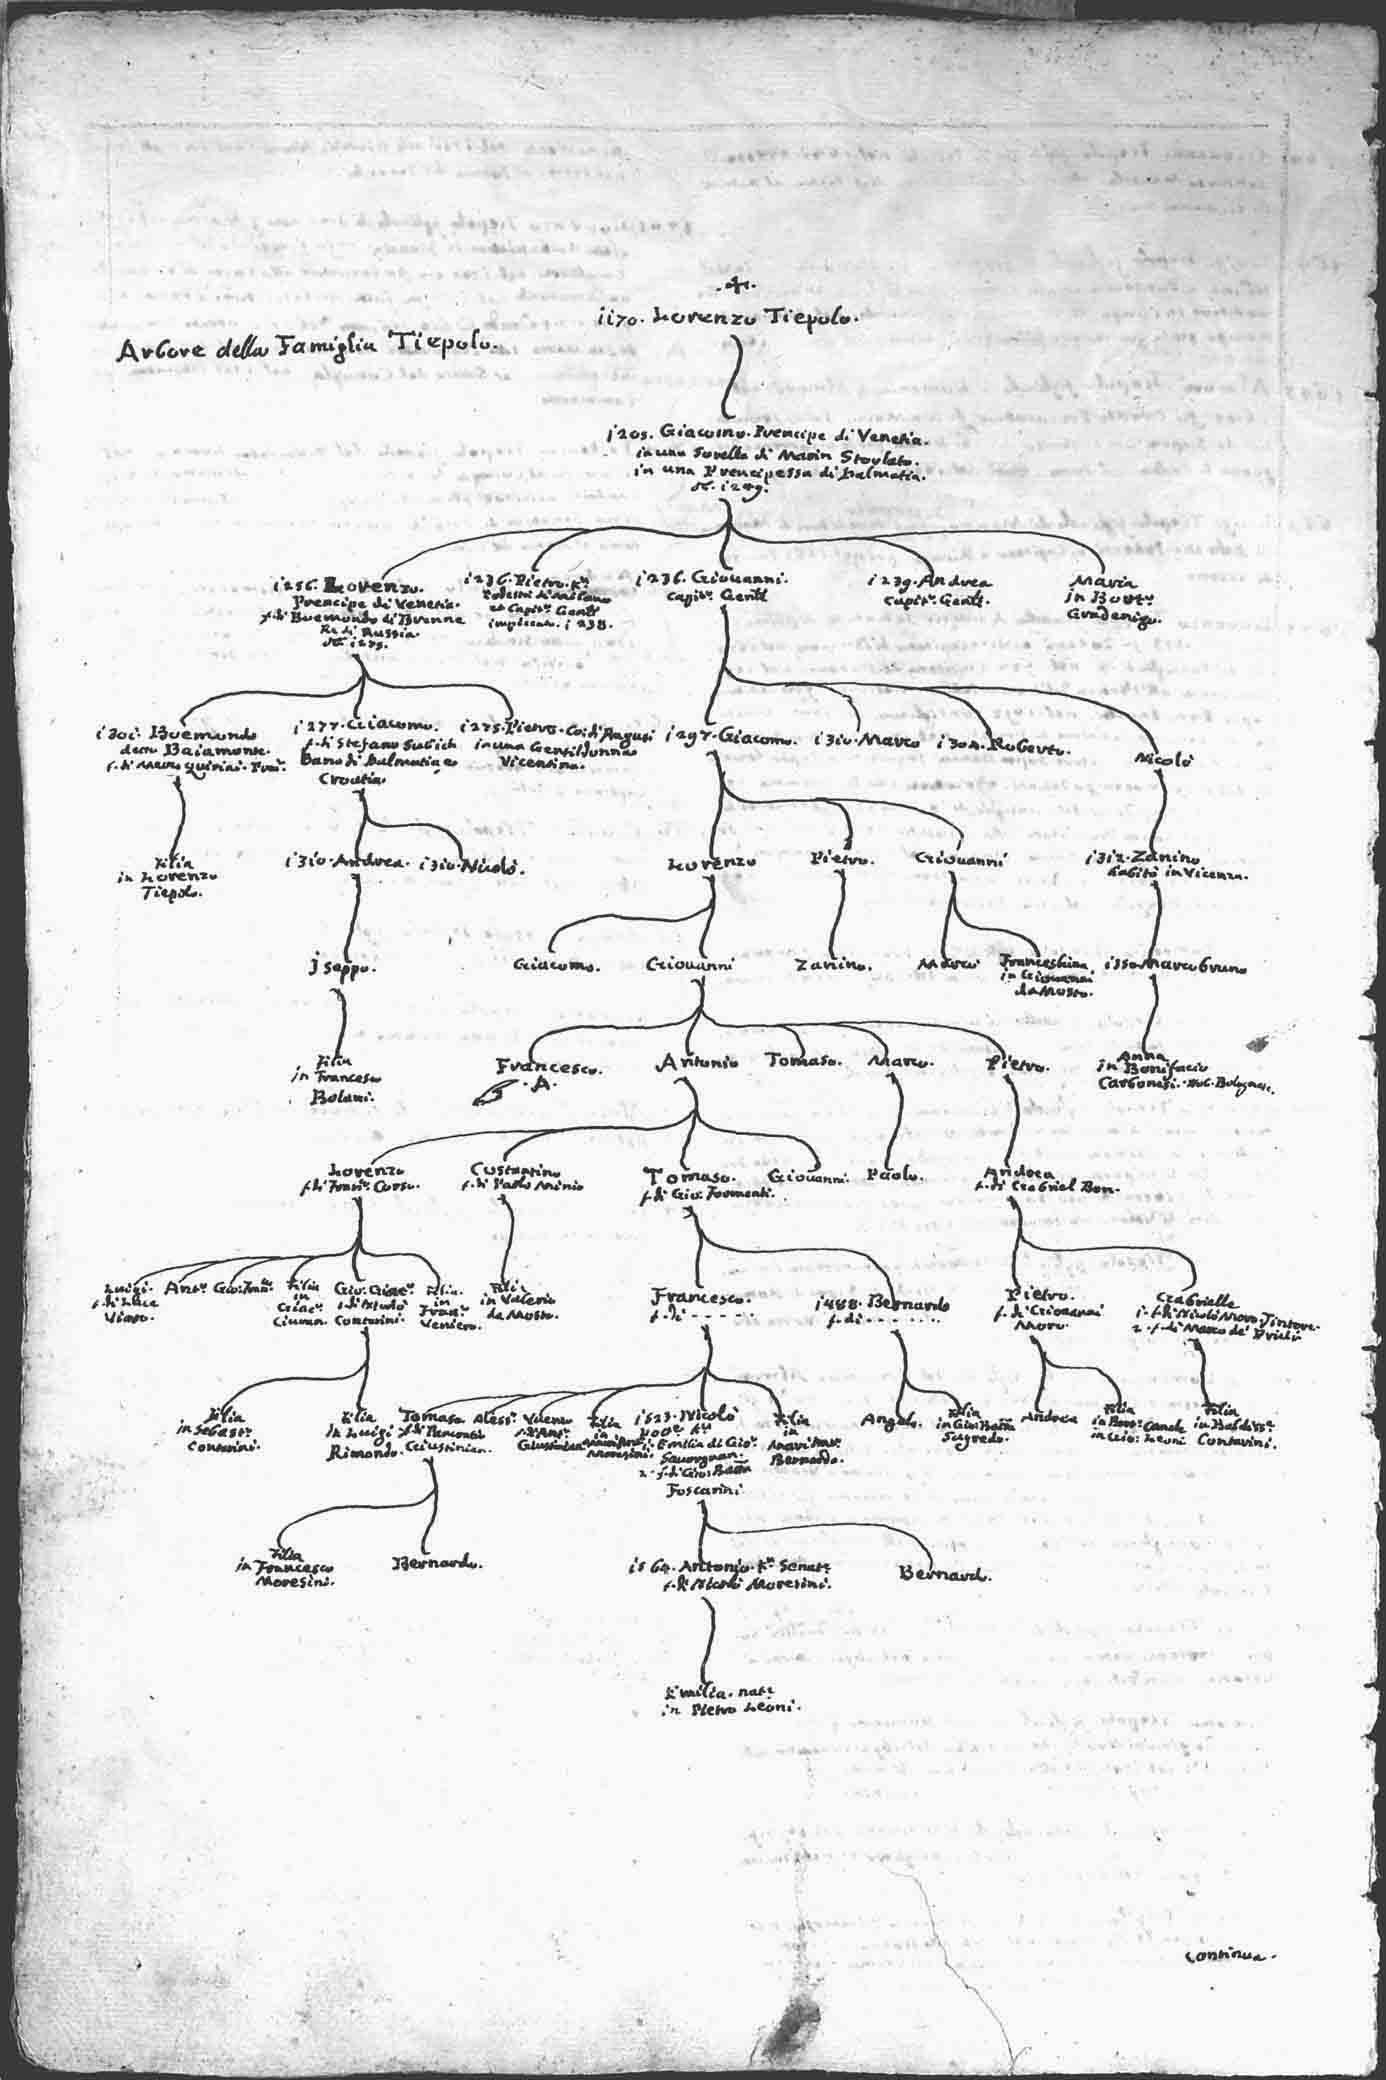 .+.
i170. Lorenzo Tiepolo.
Arbore della Famiglia Tiepolo.
i205. Giacomo. Prencipe di Venetia.
in una sorella di Marin Storlato.
in una Prencipessa di Dalmatia.
i249.
i256. Lorenzo.
Prencipe di Venetia.
f. di Buemondo di Brenne
Re di Russia.
i275.
i236. Pietro. Kr.
Podestà di Milano
et Capitº. Genll
impiccato. i238.
i236. Giovanni.
Capitº. Genll
i239. Andrea
Capitº. Genll.
Maria
in Bortº.
Gradenigo.
i30i. Boemondo
detto Baiamonte.
f. di Marco Quirini.
i277. Giacomo.
f. di Stefano Subich
Bano di Dalmatia e
Croatia.
i275. Pietro. Co: d'Ausugi
in una Gentildonna
Vicentina.
i297. Giacomo.
i310. Marco
i304. Roberto.
Nicolò
Filia
in Lorenzo
Tiepolo.
i310. Andrea.
i310. Nicolò.
Lorenzo
Pietro.
Giovanni
i312. Zanino
habitò in Vicenza.
Jseppo.
Giacomo.
Giovanni
Zanino.
Marco
Franceschina
in Giovanni
da Mosto.
i350 Marcobruno
Filia
in Francesco
Bolani.
Francesco.
.A.
Antonio
Tomaso.
Marco.
Pietro.
Anna
in Bonifacio
Carbonesi. Nob. Bolognese.
Lorenzo
f. di Franº. Corso.
Costantino
f. di Paolo Minio
Tomaso.
f. di Gio: Formenti.
Giovanni.
Paolo.
Andrea
f. di Gabriel Bon.
Luigi.
f. di Luca
Viaro.
Antº.
Gio: Franº.
Filia
in
Giacº.
Civran.
Gio: Giacº.
Contarini.
Filia.
in
Franº.
Veniero.
Filia
in Valerio
da Mosto.
Francesco.
f. di - - - - -
i488. Bernardo
f. di . . . . . . .
Pietro.
f. di Giovanni
Moro.
Gabrielle
i. f. di Nicolò Moro. Tintore.
2. f. di Marco de' Priuli
Filia
in Sebastº.
Contarini.
Filia
in Luigi
Rimondo.
Tomaso
Giustinian.
Aless°.
f. di Antº.
Giustinian
Filia
in
Moresini.
i523. Nicolò
i. Emilia di Gio:
Savorgnan.
2. f. di Gio: Batta
Foscarini
Filia
in
Bernardo.
Angelo.
Filia
in Gio: Batta
Sagredo.
Andrea
Filia
in Bortº. Canale
in Gio: Leoni
Filia
in Baldissº.
Contarini.
Filia
in Francesco
Moresini.
Bernardo.
i564. Antonio. Kr. Senatr
f. di Nicolò Moresini.
Bernard.
Emilia. natr
in Pietro Leoni.
continua.